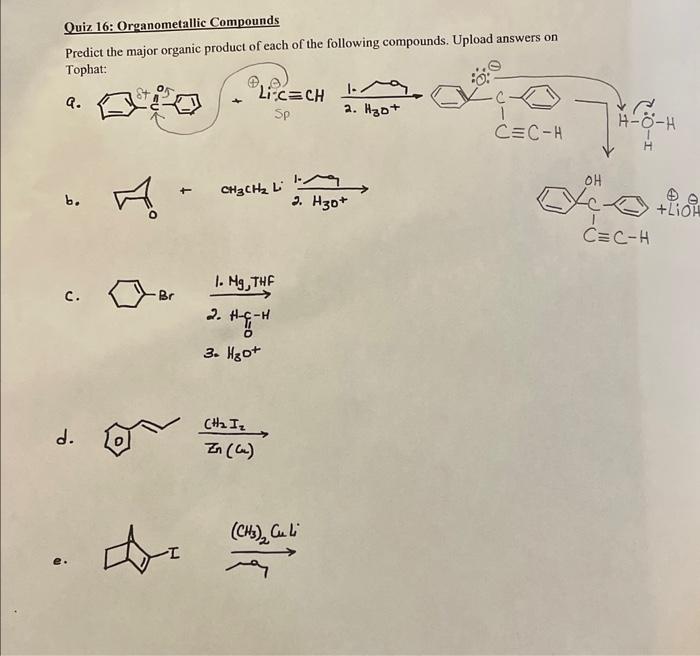 Quiz 16: Organometallic Compounds
Predict the major organic product of each of the following compounds. Upload answers on
Tophat:
a. δ+ C O δ- + ⊕ ⊖ Li:C≡CH 1. O 2. H3O+ :Ö: ⊖ C C≡C-H H-Ö-H H
Sp
OH C C≡C-H + ⊕ ⊖ LiOH
b. O + CH3CH2 Li 1. O 2. H3O+
c. Br 1. Mg, THF
2. H-C-H
O
3. H3O+
d. CH2 I2
Zn (Cu)
e. I (CH3)2 Cu Li
O